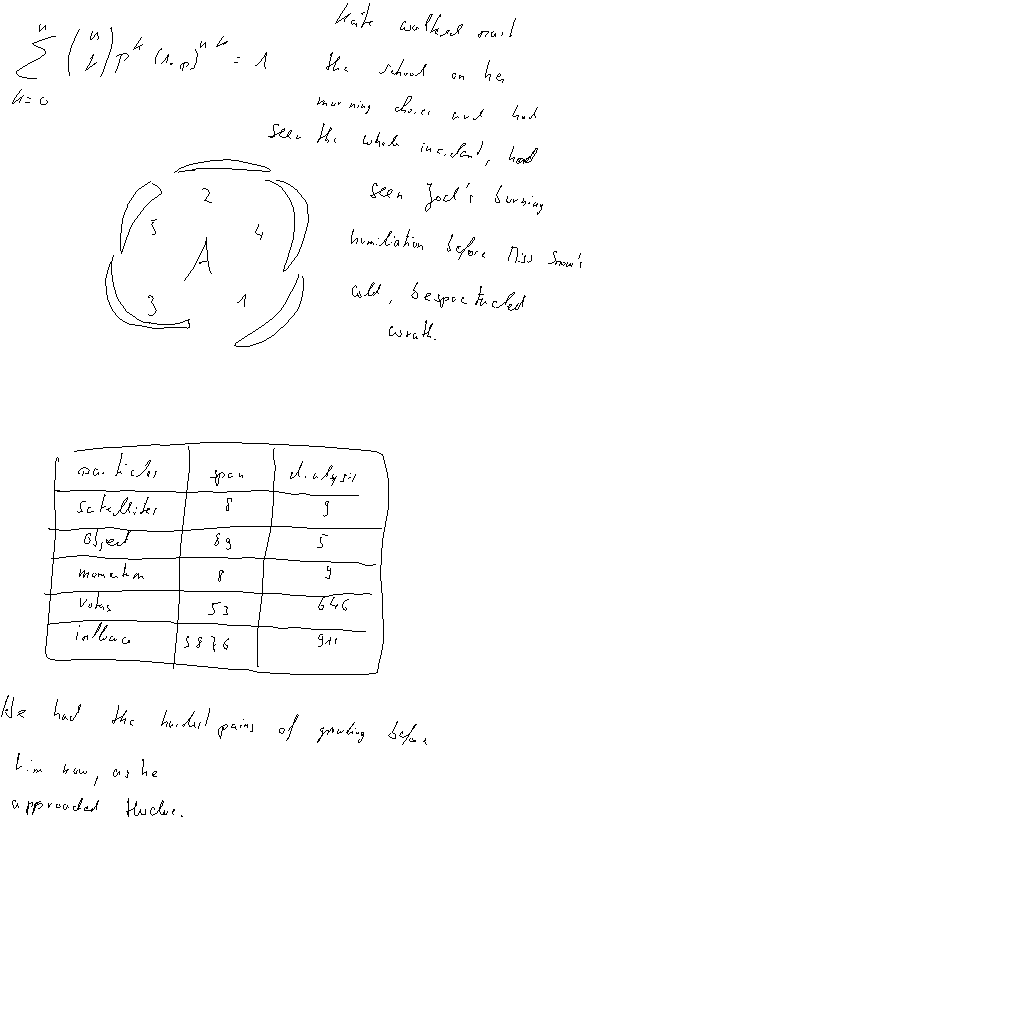 n
∑ (n k) p^k (1-p)^n-k = 1
k=0
Kate walked past
the school on her
morning chores and had
seen the whole incident, had
seen Joel's burning
humiliation before Miss Snow's
cold, bespectacled
wrath.
2
5 4
A
3 1
particles span analysis
satellites 8 9
object 89 5
momentum 8 9
votes 53 646
influence 5876 911
He had the hardest pains of growing before
him now, as he
approached twelve.